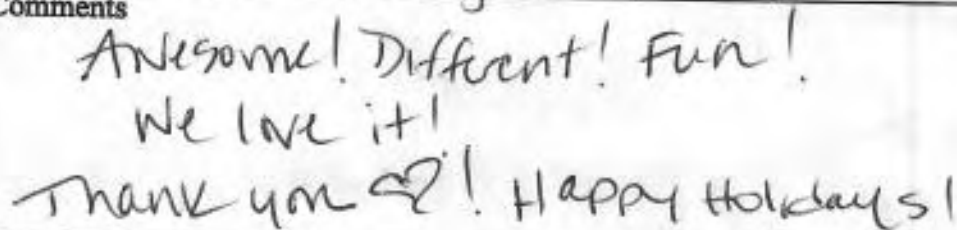 Comments
Awesome! Different! Fun!
We love it!
Thank you ♡! Happy Holidays!